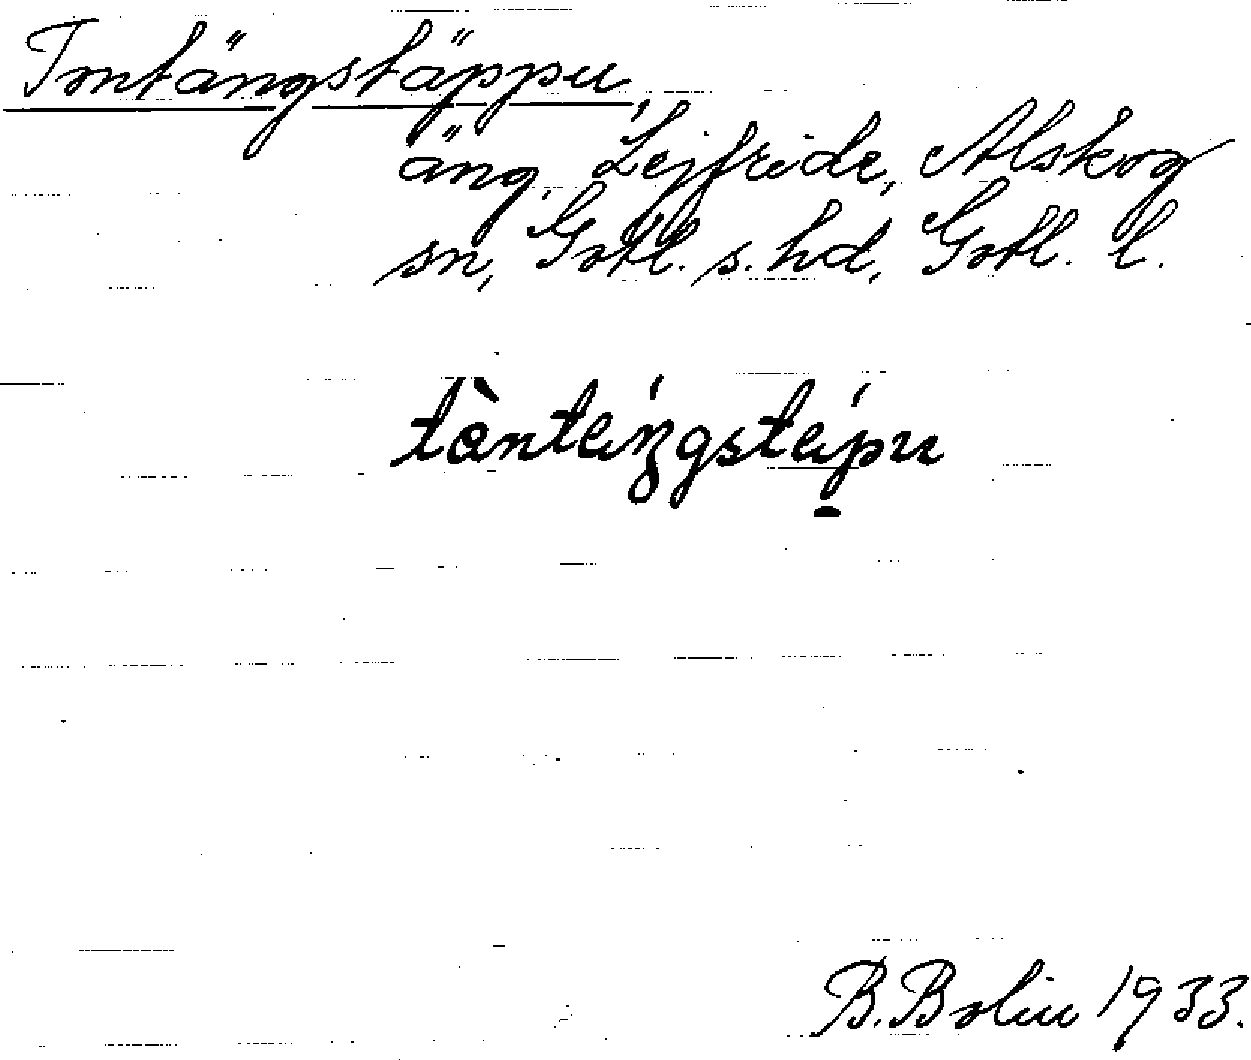 Tomtängstäppu,
äng, Lejfride, Alskog
sn, Gotl. s. hd, Gotl. l.
B. Bolin 1933.